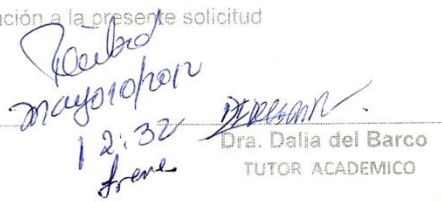 ción a la presente solicitud
Recibido
mayo 10/2012
12:32
Irene
Dra. Dalia del Barco
TUTOR ACADEMICO